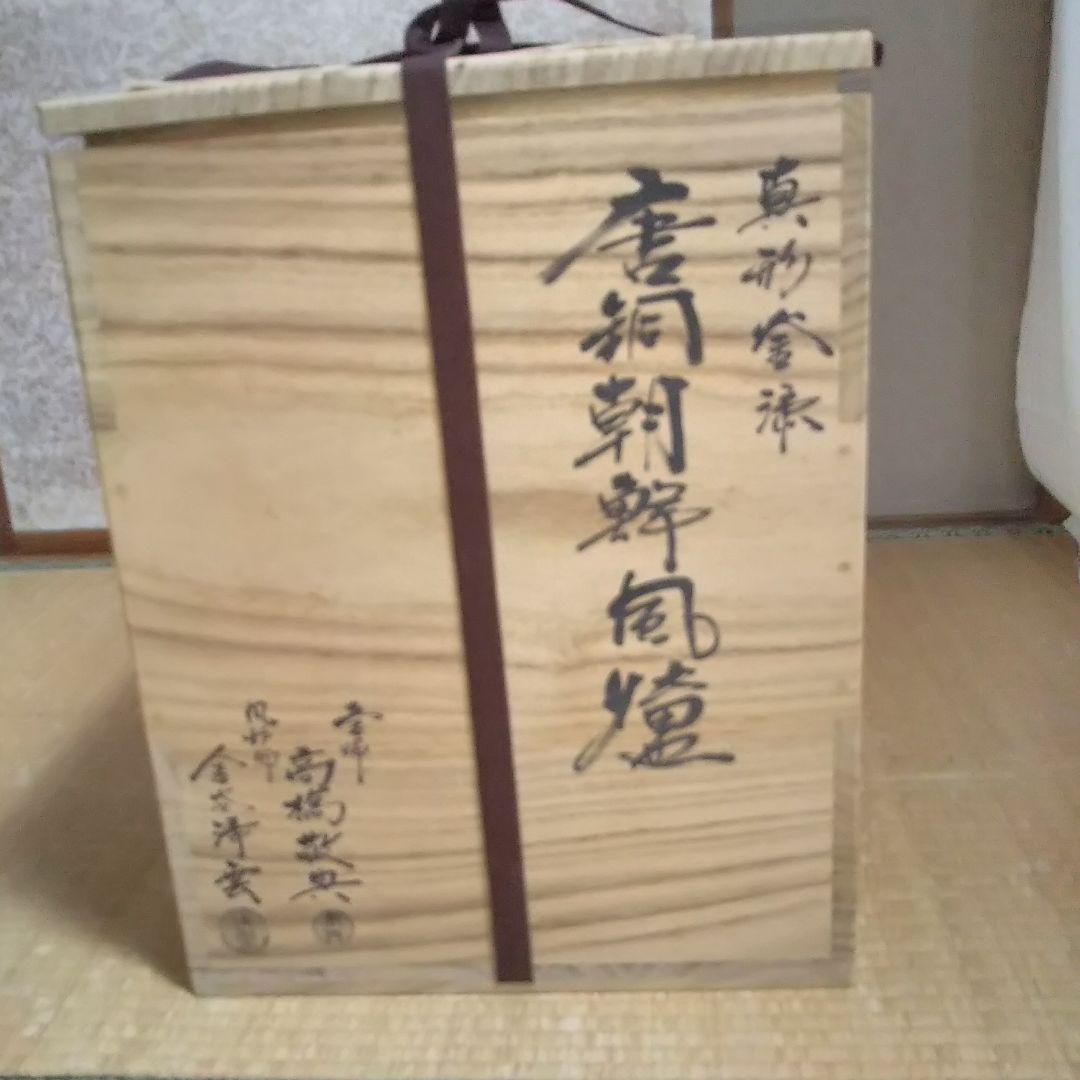 真形釜添
唐銅朝鮮風爐
釜師
高橋敬典
風炉師
金森浄雲